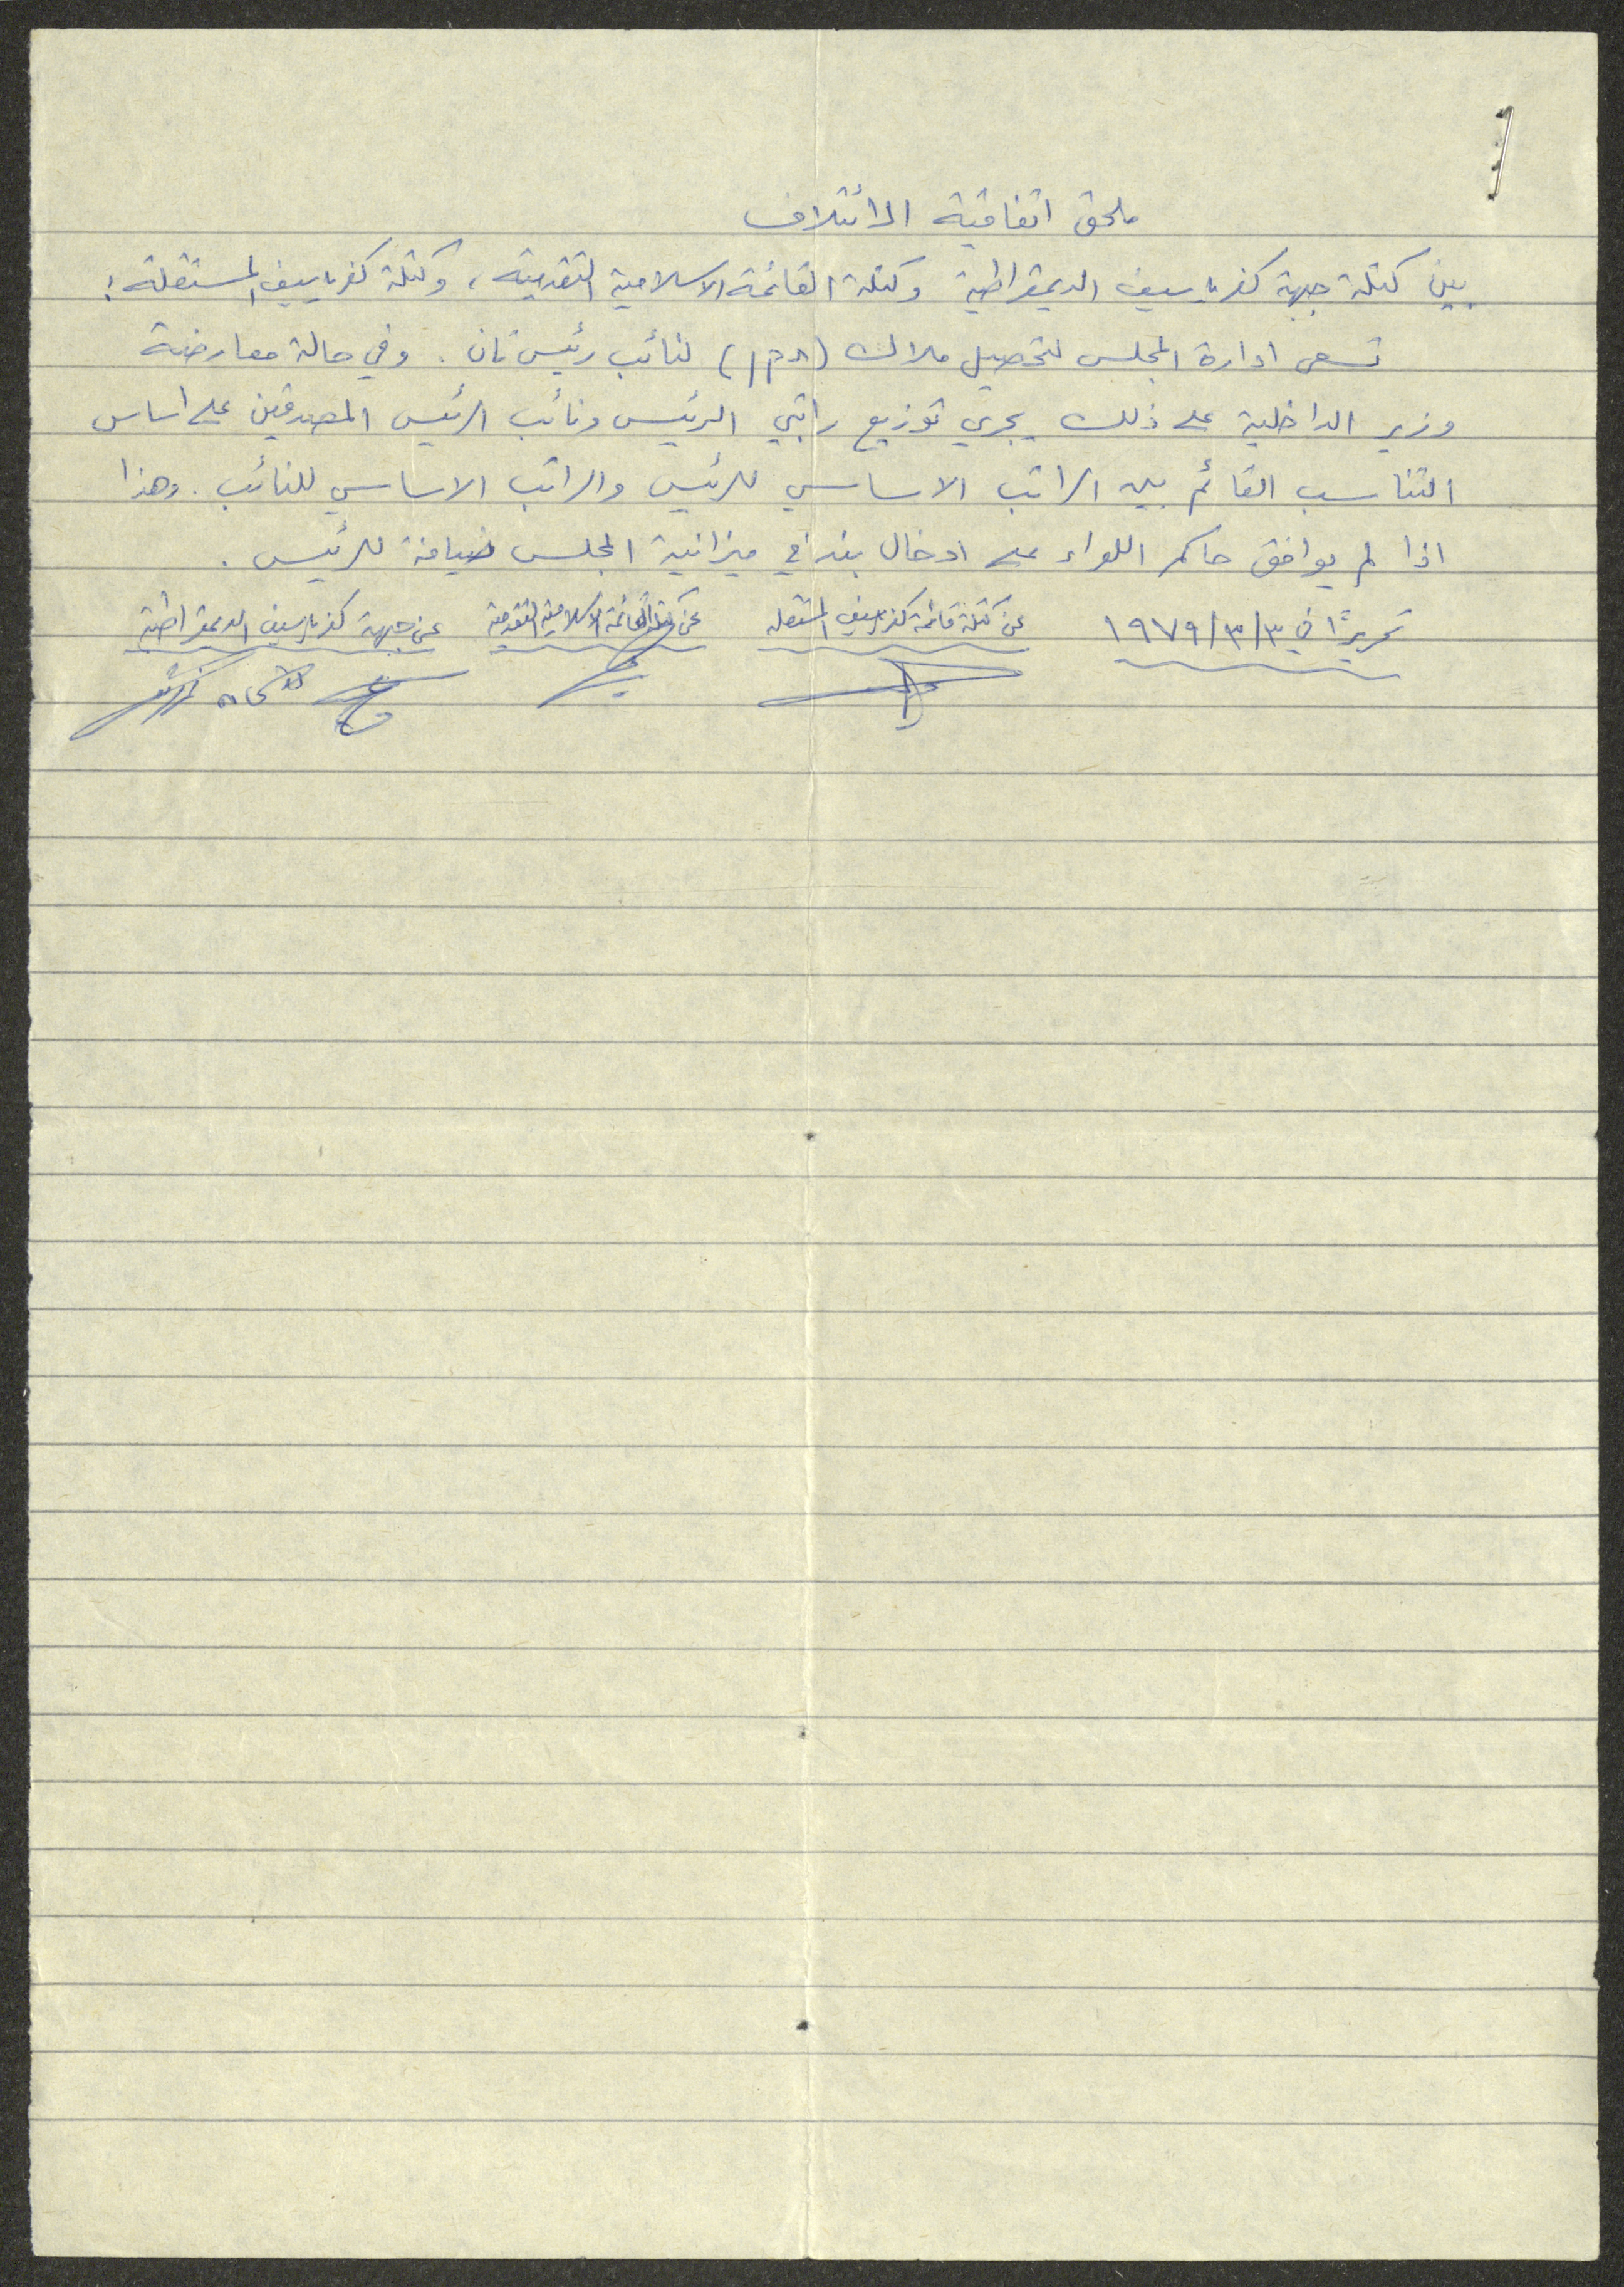 ملحق اتفاقية الائتلاف
بين كتلة جبهة كفرياسيف الديمقراطية وكتلة القائمة الاسلامية التقدمية، وكتلة كفرياسيف المستقلة:
تسعى ادارة المجلس لتحصيل ملاك (תקן) لنائب رئيس ثان. وفي حالة معارضة
وزير الداخلية على ذلك يجري توزيع راتبي الرئيس ونائب الرئيس المصدقين على اساس
التناسب القائم بين الراتب الاساسي للرئيس والراتب الاساسي للنائب. وهذا
اذا لم يوافق حاكم اللواء على ادخال بند في ميزانية المجلس ضيافة للرئيس.
تحريرًا في ٣/٣/١٩٧٩
عن كتلة قائمة كفرياسيف المستقله
عن كتلة القائمة الاسلامية التقدمية
عن جبهة كفرياسيف الديمقراطية